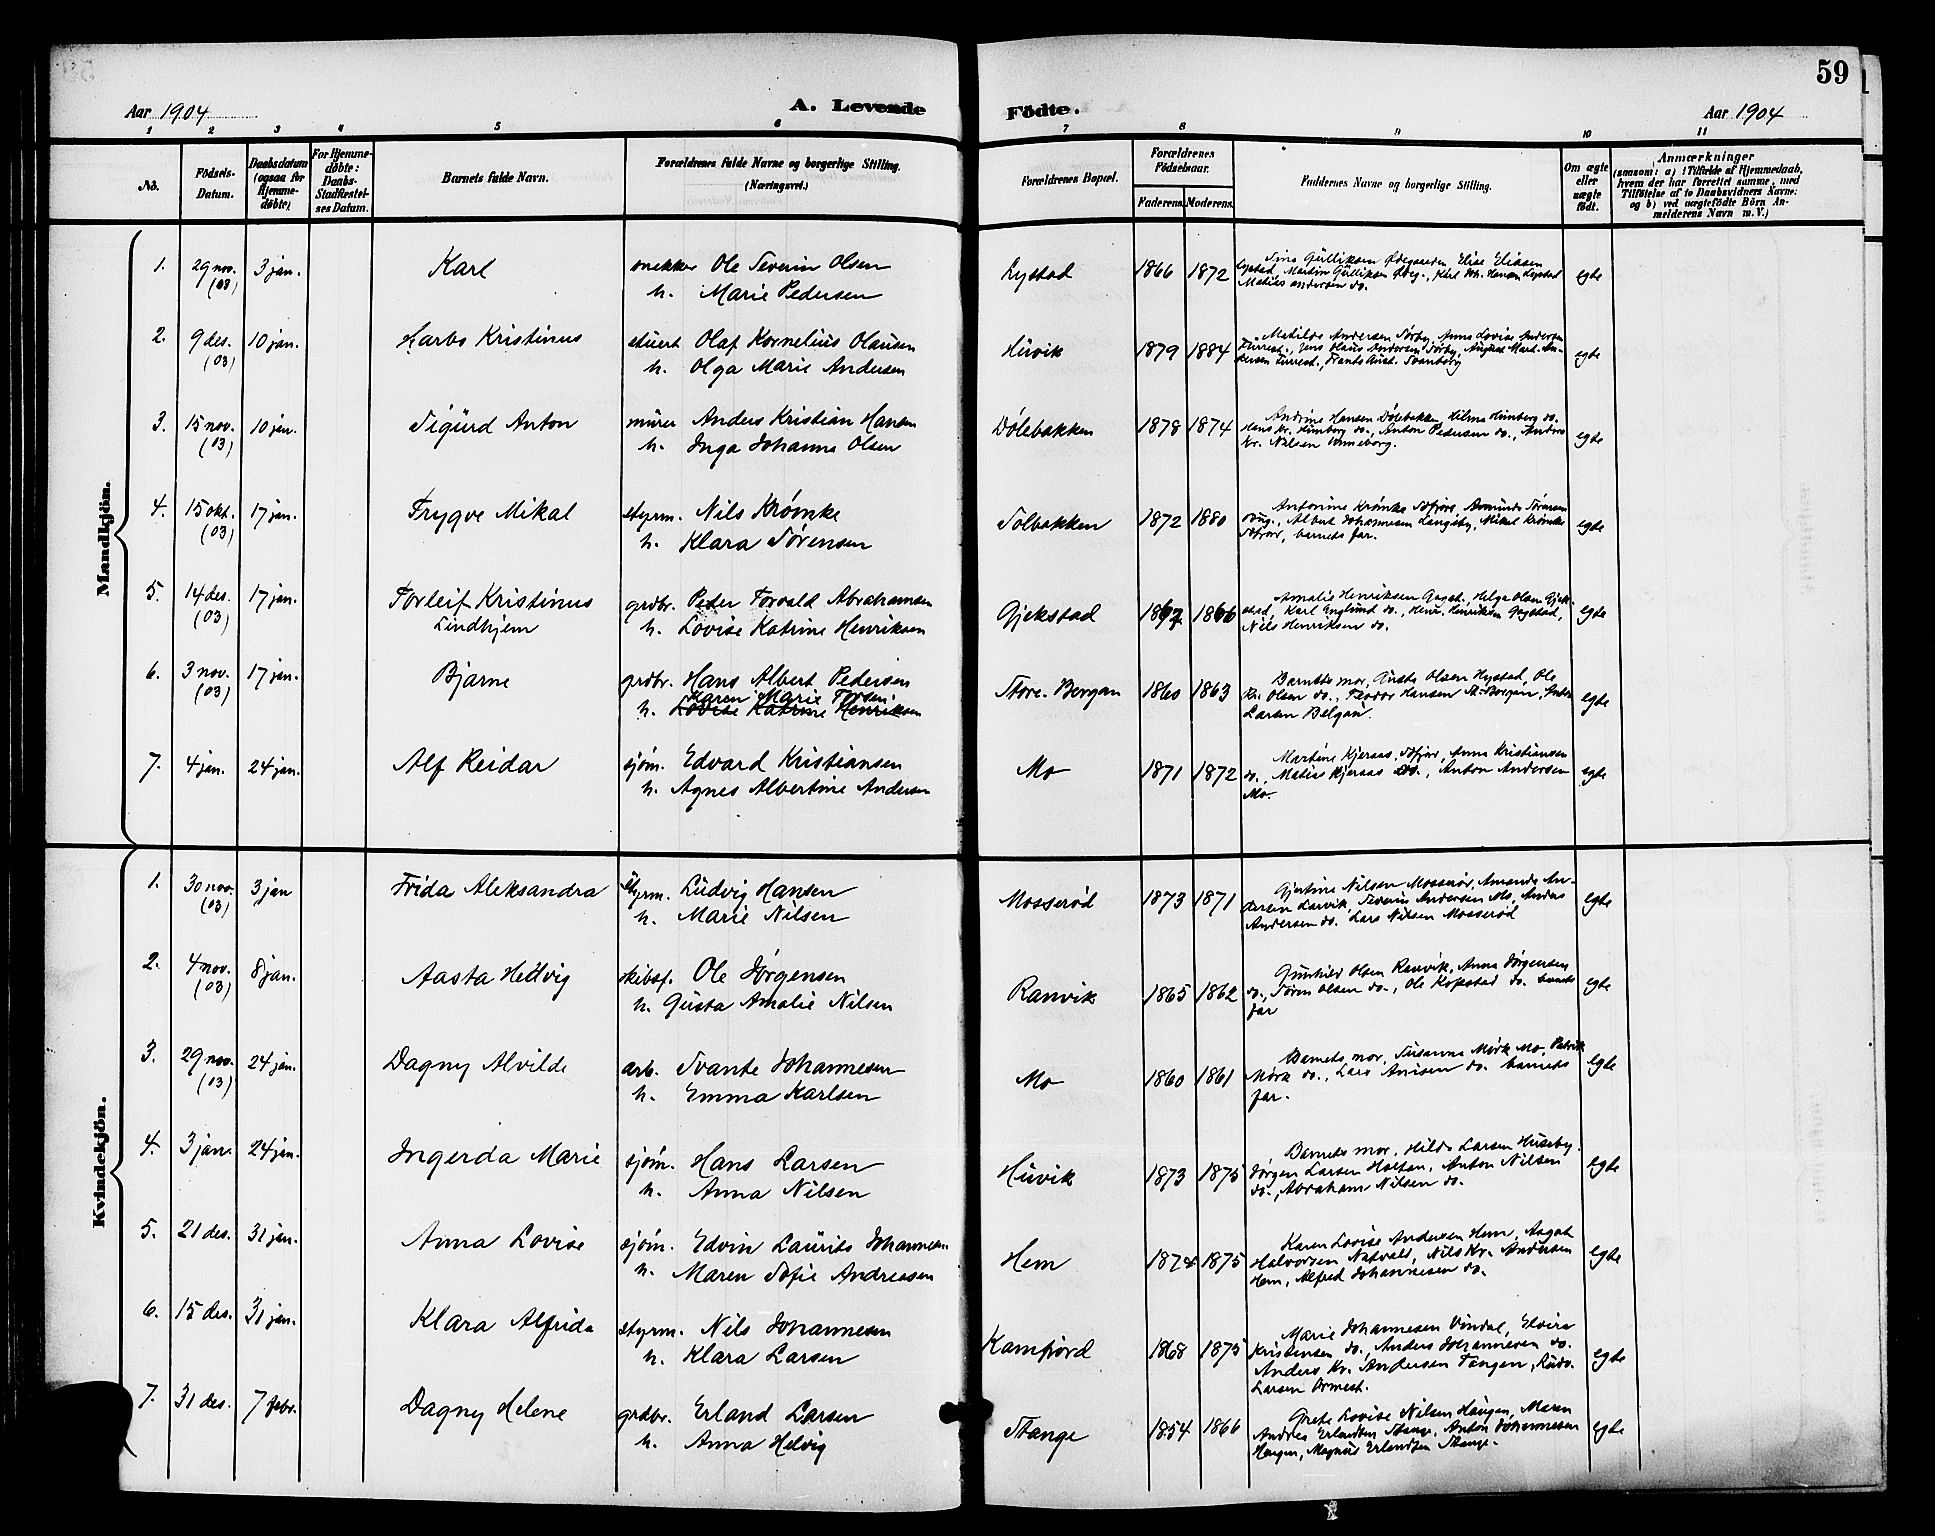 59
Aar 1904
A. Levende
Födte.
Aar 1904
1 2 3 4 5 6 7 8 9 10 11
No.
Fødsels-
Datum.
Daabsdatum
(ogsaa for
Hjemme-
døbte)
For Hjemme-
døbte:
Daabs-
Stadfæstel-
ses Datum.
Barnets fulde Navn.
Forældrenes fulde Navne og borgerlige Stilling.
(Næringsvei.)
Forældrenes Bopæl.
Forældrenes
Fødselsaar.
Faderens. Moderens.
Faddernes Navne og borgerlige Stilling.
Om ægte
eller
uægte
født.
Anmærkninger
(saasom: a) i Tilfælde af Hjemmedaab,
hvem der har forrettet samme, med
Tilføielse af to Daabsvidners Navne;
og b) ved uægtefødte Børn An-
melderens Navn m. V.)
Mandkjön.
1. 29 nov. (03) 3 jan. Karl
snekker Ole Severin Olsen
h. Marie Pedersen
Lystad 1866 1872
Gulliksen Ødegaarden Elise Eliasen
Lystad, Martin Gulliksen Ødeg., Karl Joh. Hansen Lystad
Matias Andersen do.
egte
2. 9 des. (03) 10 jan. Harbo Kristinus
stuert Olaf Kornelius Olausen
h. Olga Marie Andersen
Huvik 1879 1884
Matilde Andersen Sørby, Anna Lovise Andersen
Furrest., Jens Olaus Andersen Sørby, August Mart. An-
dersen Furrest., Frants Aust. Svanberg
egte
3. 15 nov. (03) 10 jan. Sigurd Anton
murer Anders Kristian Hansen
h. Inga Johanne Olsen
Dølebakken 1878 1874
Andrine Hansen Dølebakken, Hilma Hunberg do.
Hans Kr. Hunberg do., Anton Pedersen do., Anders
Kr. Nilsen Unneberg.
egte
4. 15 okt. (03) 17 jan. Trygve Mikal
styrm. Nils Krømke
h. Klara Sørensen
Solbakken 1872 1880
Antonine Krømke Sdfjord, Amunda Sørensen
Albert Johannesen Langeby, Mikal Krømke
Sdfjord, barnets far.
egte
5. 14 des. (03) 17 jan. Torleif Kristinus
Lindhjem
grdbr. Peder Torvald Abrahamsen
h. Lovise Katrine Henriksen
Gjekstad 1867 1866
Amalie Henriksen Gogst. Helga Olsen Gjek-
stad, Karl Englund do., Henr. Henriksen Gogstad,
Nils Henriksen do.
egte
6. 3 nov. (03) 17 jan. Bjarne
grdbr. Hans Albert Pedersen
Karen Marie
h. Lovise Katrine Henriksen
Store-Bergan 1860 1863
Barnets mor, Gusta Olsen Hystad, Ole
Kr. Olsen do., Teodor Hansen St-Bergan, Anton
Larsen Belgau.
egte
7. 4 jan. 24 jan. Alf Reidar
sjøm. Edvard Kristiansen
h. Agnes Albertine Andersen
Mo 1871 1872
Martine Kjeraas, Sdfjord, Anna Kristiansen
do., Matias Kjeraas do., Anton Andersen
Mo.
egte
Kvindekjön.
1. 30 nov. (03) 3 jan Frida Aleksandra
styrm. Ludvig Hansen
h. Marie Nilsen
Mosserød 1873 1871
Gjertine Nilsen Mosserød, Amanda An-
dersen Larvik, Severin Andersen Mo, Anders
Andersen do. Lars Nilsen Mosserød
egte
2. 4 nov. (03) 8 jan. Aasta Hedvig
skibsf. Ole Jørgensen
h. Gusta Amalie Nilsen
Ranvik 1865 1862
Gunhild Olsen Ranvik, Anna Jørgensen
do., Søren Olsen do., Ole Kopstad do. barnets
far
egte
3. 29 nov. (03) 24 jan. Dagny Alvilde
arb. Svante Johannesen
h. Emma Karlsen
Mo 1860 1861
Barnets mor, Susanna Mørk Mo, Patrik
Mørk do., Lars Anisen do. barnets
far.
egte
4. 3 jan. 24 jan. Ingerda Marie
sjøm. Hans Larsen
h. Anna Nilsen
Huvik 1873 1875
Barnets mor, Hilda Larsen Huseby,
Jørgen Larsen Holtan, Anton Nilsen
do., Abraham Nilsen do.
egte
5. 21 des. 31 jan. Anna Lovise
sjøm. Edvin Laurits Johannesen
h. Maren Sofie Andreasen
Hem 1874 1875
Karen Lovise Andersen Hem, Aagot
Halvorsen Natvald, Nils Kr. Andersen
Hem, Alfred Johannesen do.
egte
6. 15 des. 31 jan. Klara Alfrida
styrm. Nils Johannesen
h. Klara Larsen
Kamfjord 1868 1875
Marie Johannesen Vindal, Elvira
Kristensen do., Anders Johannesen do.
Anders Kr. Andersen Tangen, Rudo.
Larsen Ormest.
egte
7. 31 des. 7 febr. Dagny Helene
grdbr. Erland Larsen
h. Anna Helvig
Stange 1854 1866
Grete Lovise Nilsen Haugen, Maren
Andrea Erlandsen Stange, Anton Johannesen
Haugen, Magnus Erlandsen Stange.
egte